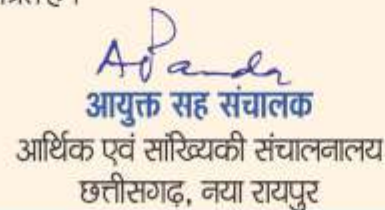 APanda
आयुक्त सह संचालक
आर्थिक एवं सांख्यिकी संचालनालय
छत्तीसगढ़, नया रायपुर